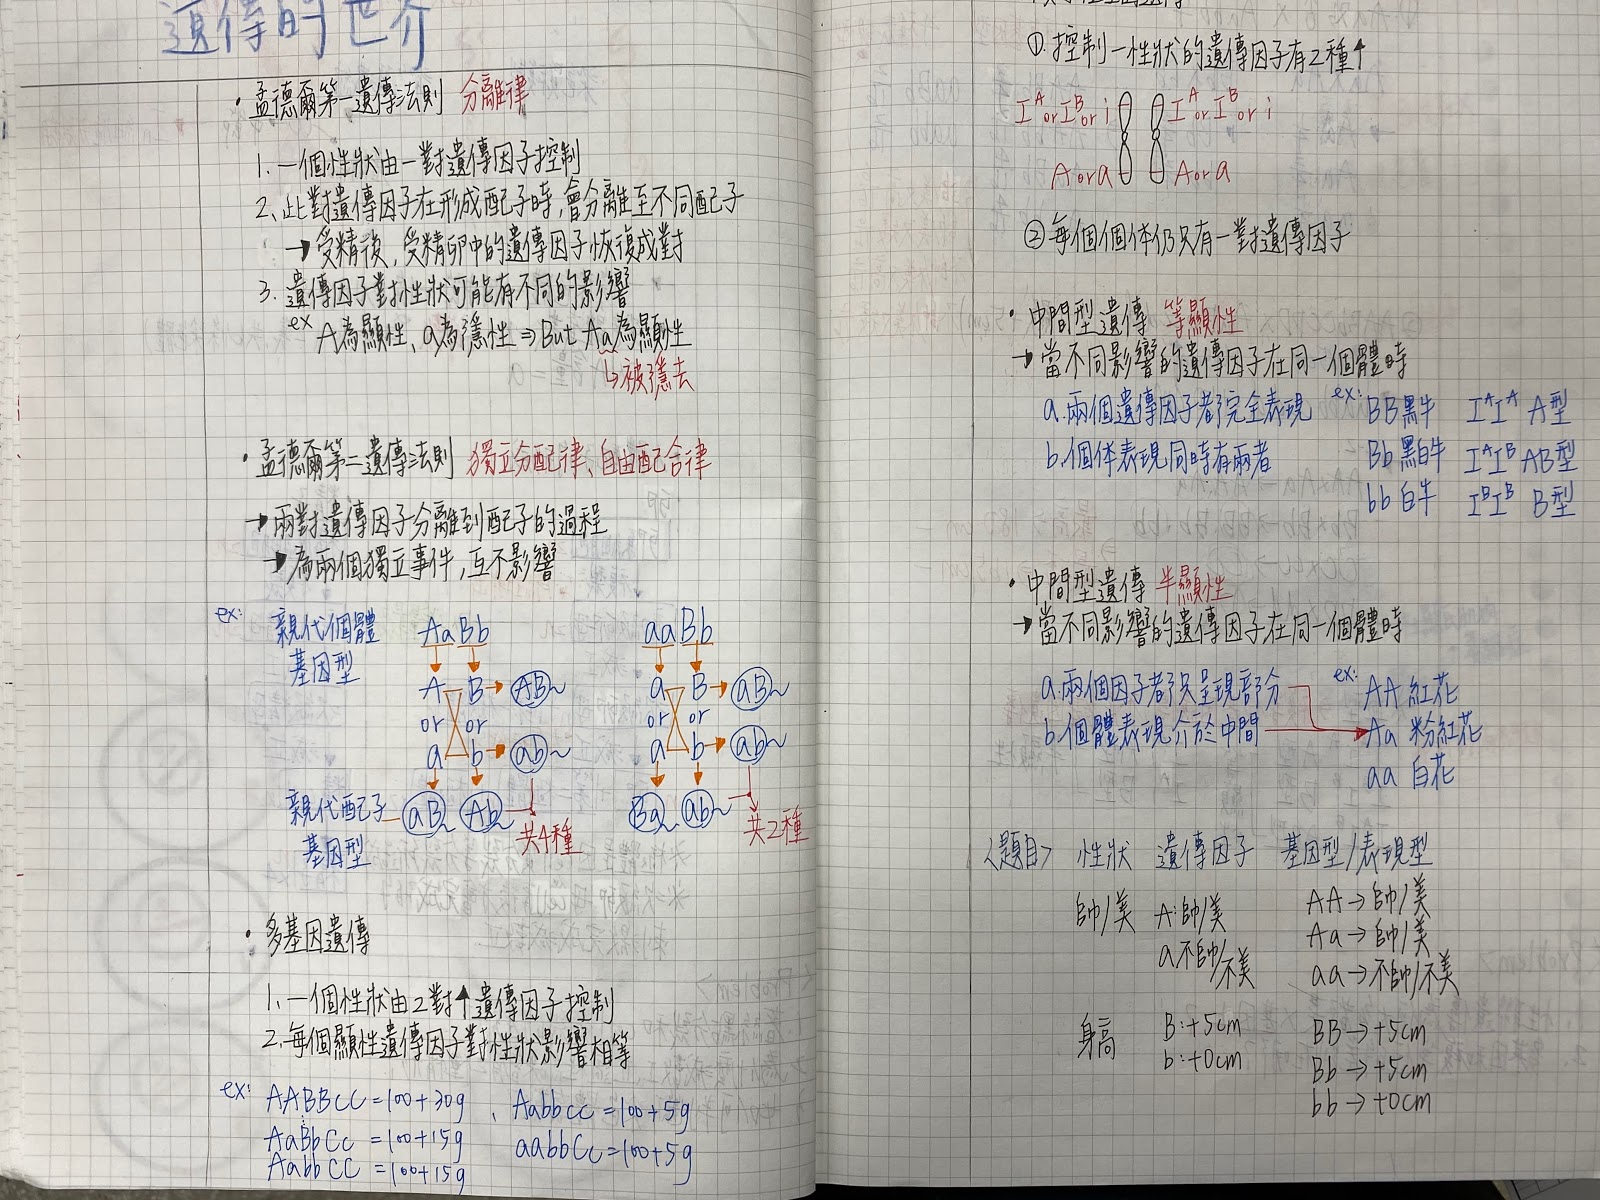 遺傳的世界
・孟德爾第一遺傳法則 分離律
1. 一個性狀由一對遺傳因子控制
2. 此對遺傳因子在形成配子時,會分離至不同配子
→受精後,受精卵中的遺傳因子恢復成對
3. 遺傳因子對性狀可能有不同的影響
ex A為顯性、a為隱性⇒But Aa為顯性
↳被隱去
・孟德爾第二遺傳法則 獨立分配律、自由配合律
→兩對遺傳因子分離到配子的過程
→為兩個獨立事件,互不影響
ex: 親代個體 AaBb aaBb
基因型
A B→AB a B→aB
or or or or
a b→ab a b→ab
親代配子 aB Ab Ba ab
基因型 共4種 共2種
・多基因遺傳
1. 一個性狀由2對↑遺傳因子控制
2. 每個顯性遺傳因子對性狀影響相等
ex: AABBCC=100+30g 、Aabbcc=100+5g
AaBbCc=100+15g aabbCc=100+5g
AabbCC=100+15g
①.控制一性狀的遺傳因子有2種↑
I^A or I^B or i I^A or I^B or i
A or a A or a
②每個個体仍只有一對遺傳因子
・中間型遺傳 等顯性
→當不同影響的遺傳因子在同一個體時
a.兩個遺傳因子都完全表現 ex: BB黑牛 I^A I^A A型
b.個体表現同時有兩者 Bb黑白牛 I^A I^B AB型
bb白牛 I^B I^B B型
・中間型遺傳 半顯性
→當不同影響的遺傳因子在同一個體時
a.兩個因子都只呈現部分 ex: AA 紅花
b.個體表現介於中間 Aa 粉紅花
aa 白花
<題目> 性狀 遺傳因子 基因型/表現型
帥/美 A:帥/美 AA→帥/美
Aa→帥/美
a不帥/不美 aa→不帥/不美
身高 B:+5cm BB→+5cm
b:+0cm Bb→+5cm
bb→+0cm